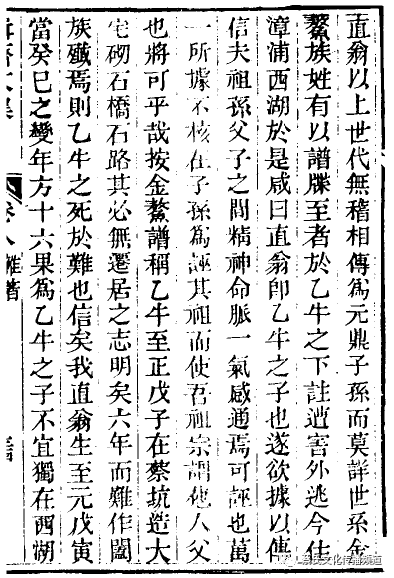 直翁以上世代無稽相傳爲元鼎子孫而莫詳世系金
鰲族姓有以譜牒至者於乙牛之下註遭害外逃今住
漳浦西湖於是咸曰直翁卽乙牛之子也遂欲據以傳
信夫祖孫父子之間精神命脈一氣感通焉可誣也萬
一所據不核在子孫爲誣其祖而使吾祖宗謂他人父
也將可乎哉按金鰲譜稱乙牛至正戊子在蔡坑造大
宅砌石橋石路其必無遷居之志明矣六年而難作闔
族殲焉則乙牛之死於難也信矣我直翁生至元戊寅
當癸巳之變年方十六果爲乙牛之子不宜獨在西湖
卷八 雜著